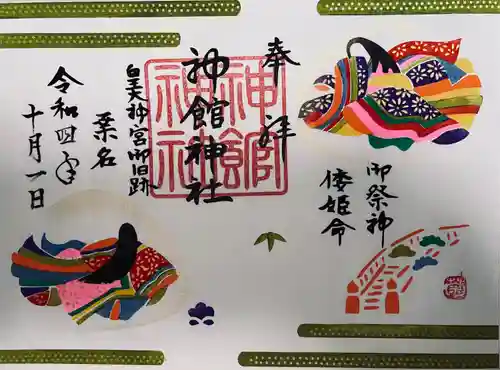 奉拝
御祭神
倭姫命
神館神社
神館
神社
皇大神宮御旧跡
桑名
令和四年
十月一日